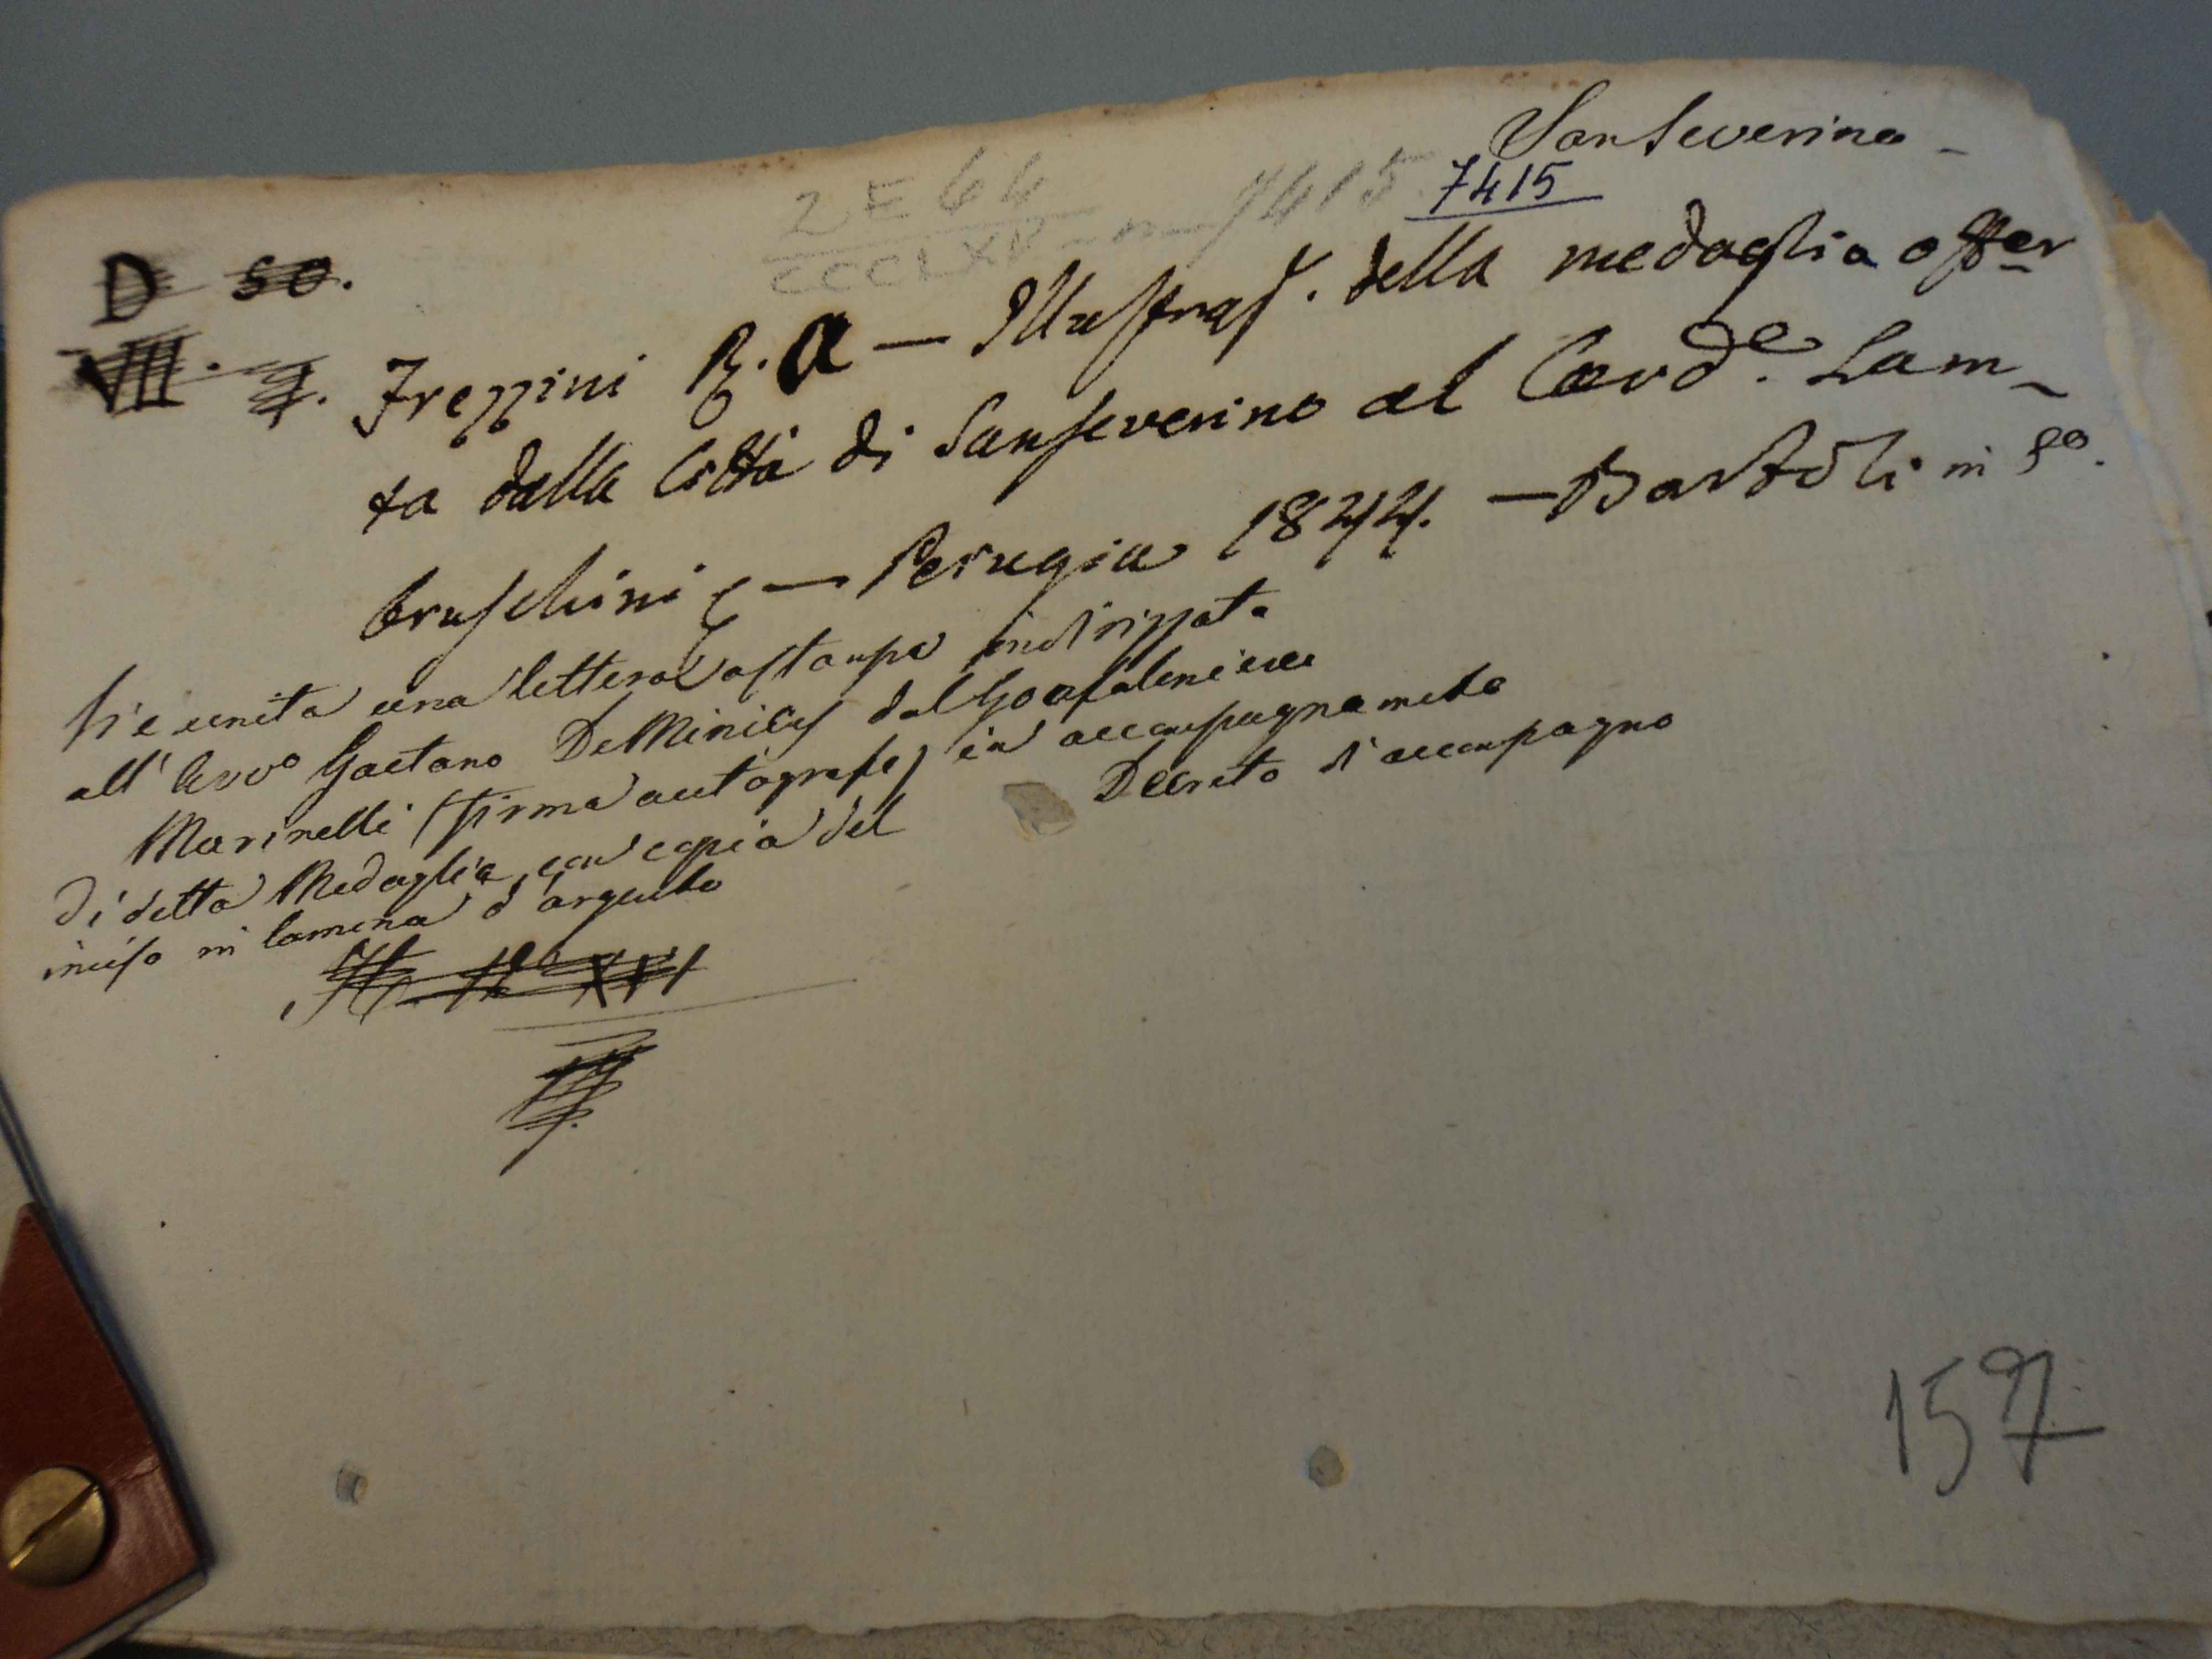 Sanseverino -
2 E 64
CCCLXV - n - 7415
7415
D 50.
VII.
Frezzini R. A — Illustraz. della medaglia offer
ta dalla Città di Sanseverino al Card.e Lam-
bruschini — Perugia 1844. — Bartoli in 8o.
Si è unita una lettera a stampa indirizzata
all' Avvo Gaetano De Minicis dal Gonfaloniere
Marinelli (firma autografa) in accompagnamento
di detta Medaglia, con copia del Decreto d'accompagno
inciso in lamina d'argento
157